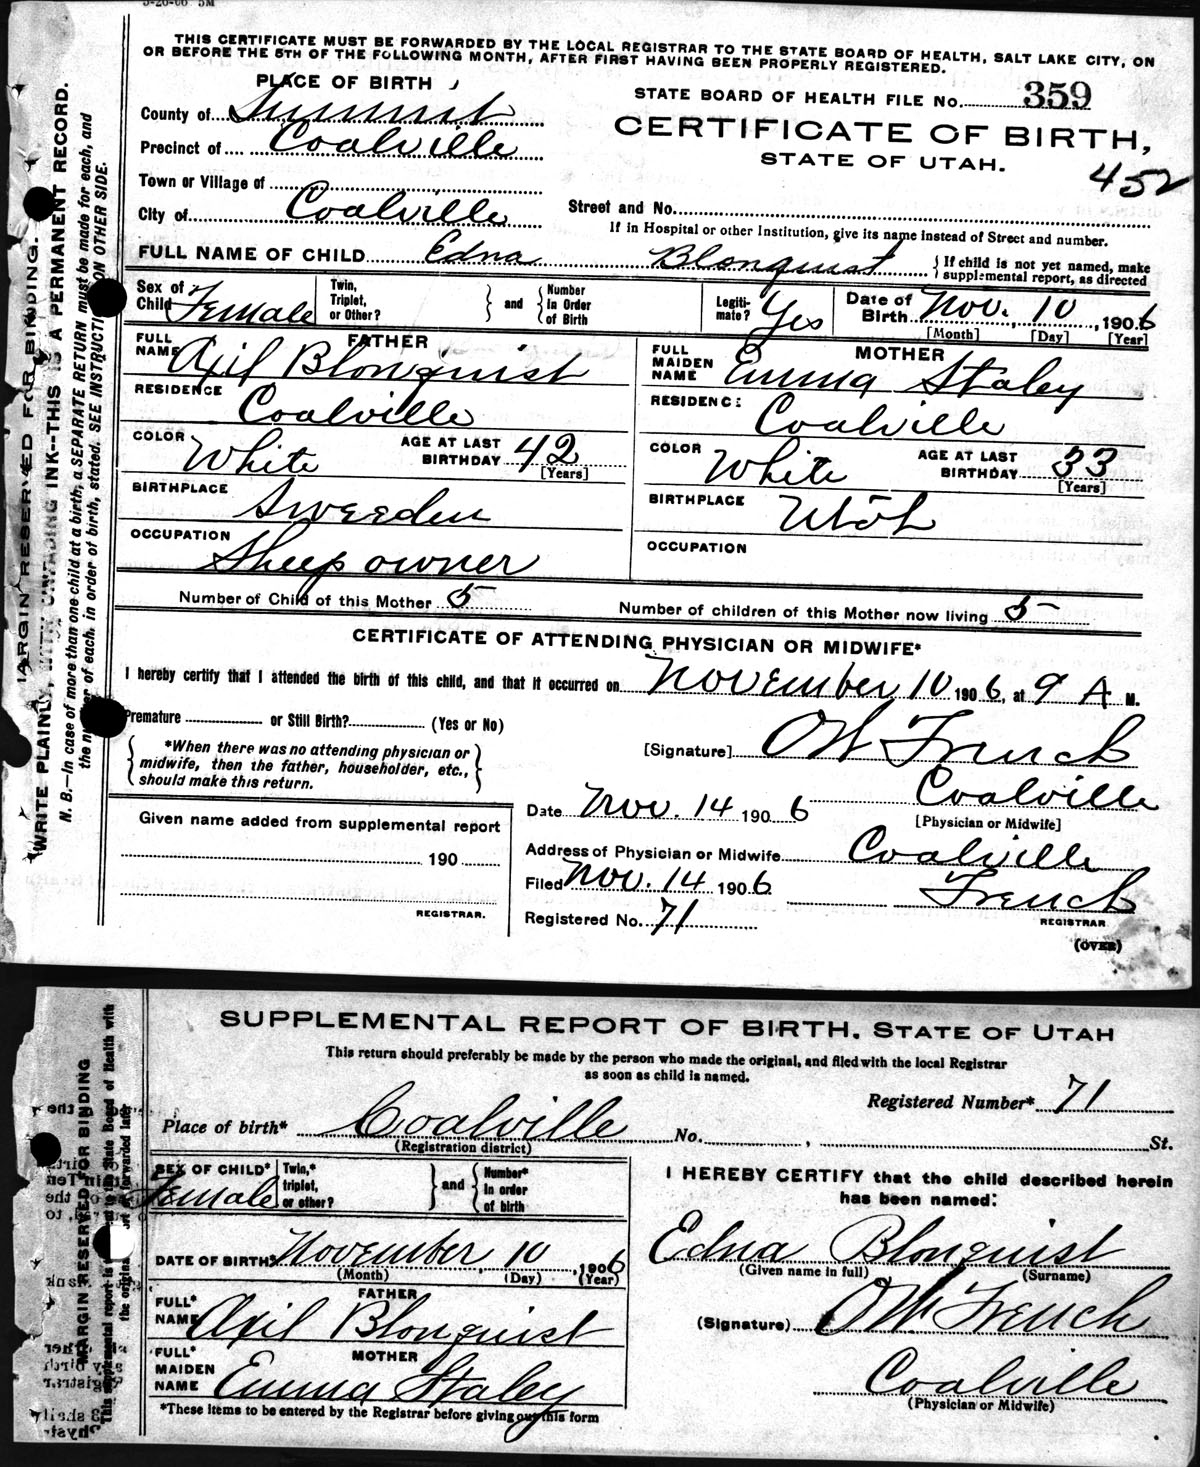 THIS CERTIFICATE MUST BE FORWARDED BY THE LOCAL REGISTRAR TO THE STATE BOARD OF HEALTH, SALT LAKE CITY, ON
OR BEFORE THE 5TH OF THE FOLLOWING MONTH, AFTER FIRST HAVING BEEN PROPERLY REGISTERED.
PLACE OF BIRTH
STATE BOARD OF HEALTH FILE No. 359
County of Summit
CERTIFICATE OF BIRTH,
Precinct of Coalville
STATE OF UTAH.
452
Town or Village of
City of Coalville
Street and No.
If in Hospital or other Institution, give its name instead of Street and number.
FULL NAME OF CHILD Edna Blonquist { If child is not yet named, make supplemental report, as directed
Sex of Child Female
Twin, Triplet, or Other? } and { Number in Order of Birth
Legiti-mate? Yes
Date of Birth Nov. 10, 1906
[Month] [Day] [Year]
FATHER
FULL NAME Axil Blonquist
RESIDENCE Coalville
COLOR White AGE AT LAST BIRTHDAY 42
[Years]
BIRTHPLACE Sweeden
OCCUPATION Sheep owner
MOTHER
FULL MAIDEN NAME Emma Staley
RESIDENCE Coalville
COLOR White AGE AT LAST BIRTHDAY 33
[Years]
BIRTHPLACE Utah
OCCUPATION
Number of Child of this Mother 5
Number of children of this Mother now living 5
CERTIFICATE OF ATTENDING PHYSICIAN OR MIDWIFE*
I hereby certify that I attended the birth of this child, and that it occurred on November 10 1906, at 9 A M.
Premature or Still Birth? (Yes or No)
{ *When there was no attending physician or midwife, then the father, householder, etc., should make this return. }
[Signature] OW French
Coalville
[Physician or Midwife]
Date Nov. 14 1906
Given name added from supplemental report
190
REGISTRAR.
Address of Physician or Midwife Coalville
Filed Nov. 14 1906 French
REGISTRAR
Registered No. 71
(OVER)
MARGIN RESERVED FOR BINDING.
WRITE PLAINLY, WITH UNFADING INK--THIS IS A PERMANENT RECORD.
N. B.—In case of more than one child at a birth, a SEPARATE RETURN must be made for each, and
the number of each, in order of birth, stated. SEE INSTRUCTIONS ON OTHER SIDE.
SUPPLEMENTAL REPORT OF BIRTH. STATE OF UTAH
This return should preferably be made by the person who made the original, and filed with the local Registrar
as soon as child is named.
Registered Number* 71
Place of birth* Coalville No. , St.
(Registration district)
SEX OF CHILD* Female
Twin,* triplet, or other? } and { Number* in order of birth
I HEREBY CERTIFY that the child described herein
has been named:
Edna Blonquist
(Given name in full) (Surname)
DATE OF BIRTH* November, 10, 1906
(Month) (Day) (Year)
FATHER
FULL* NAME Axil Blonquist
(Signature) OW French
MOTHER
FULL* MAIDEN NAME Emma Staley
Coalville
(Physician or Midwife)
*These items to be entered by the Registrar before giving out this form
MARGIN RESERVED FOR BINDING